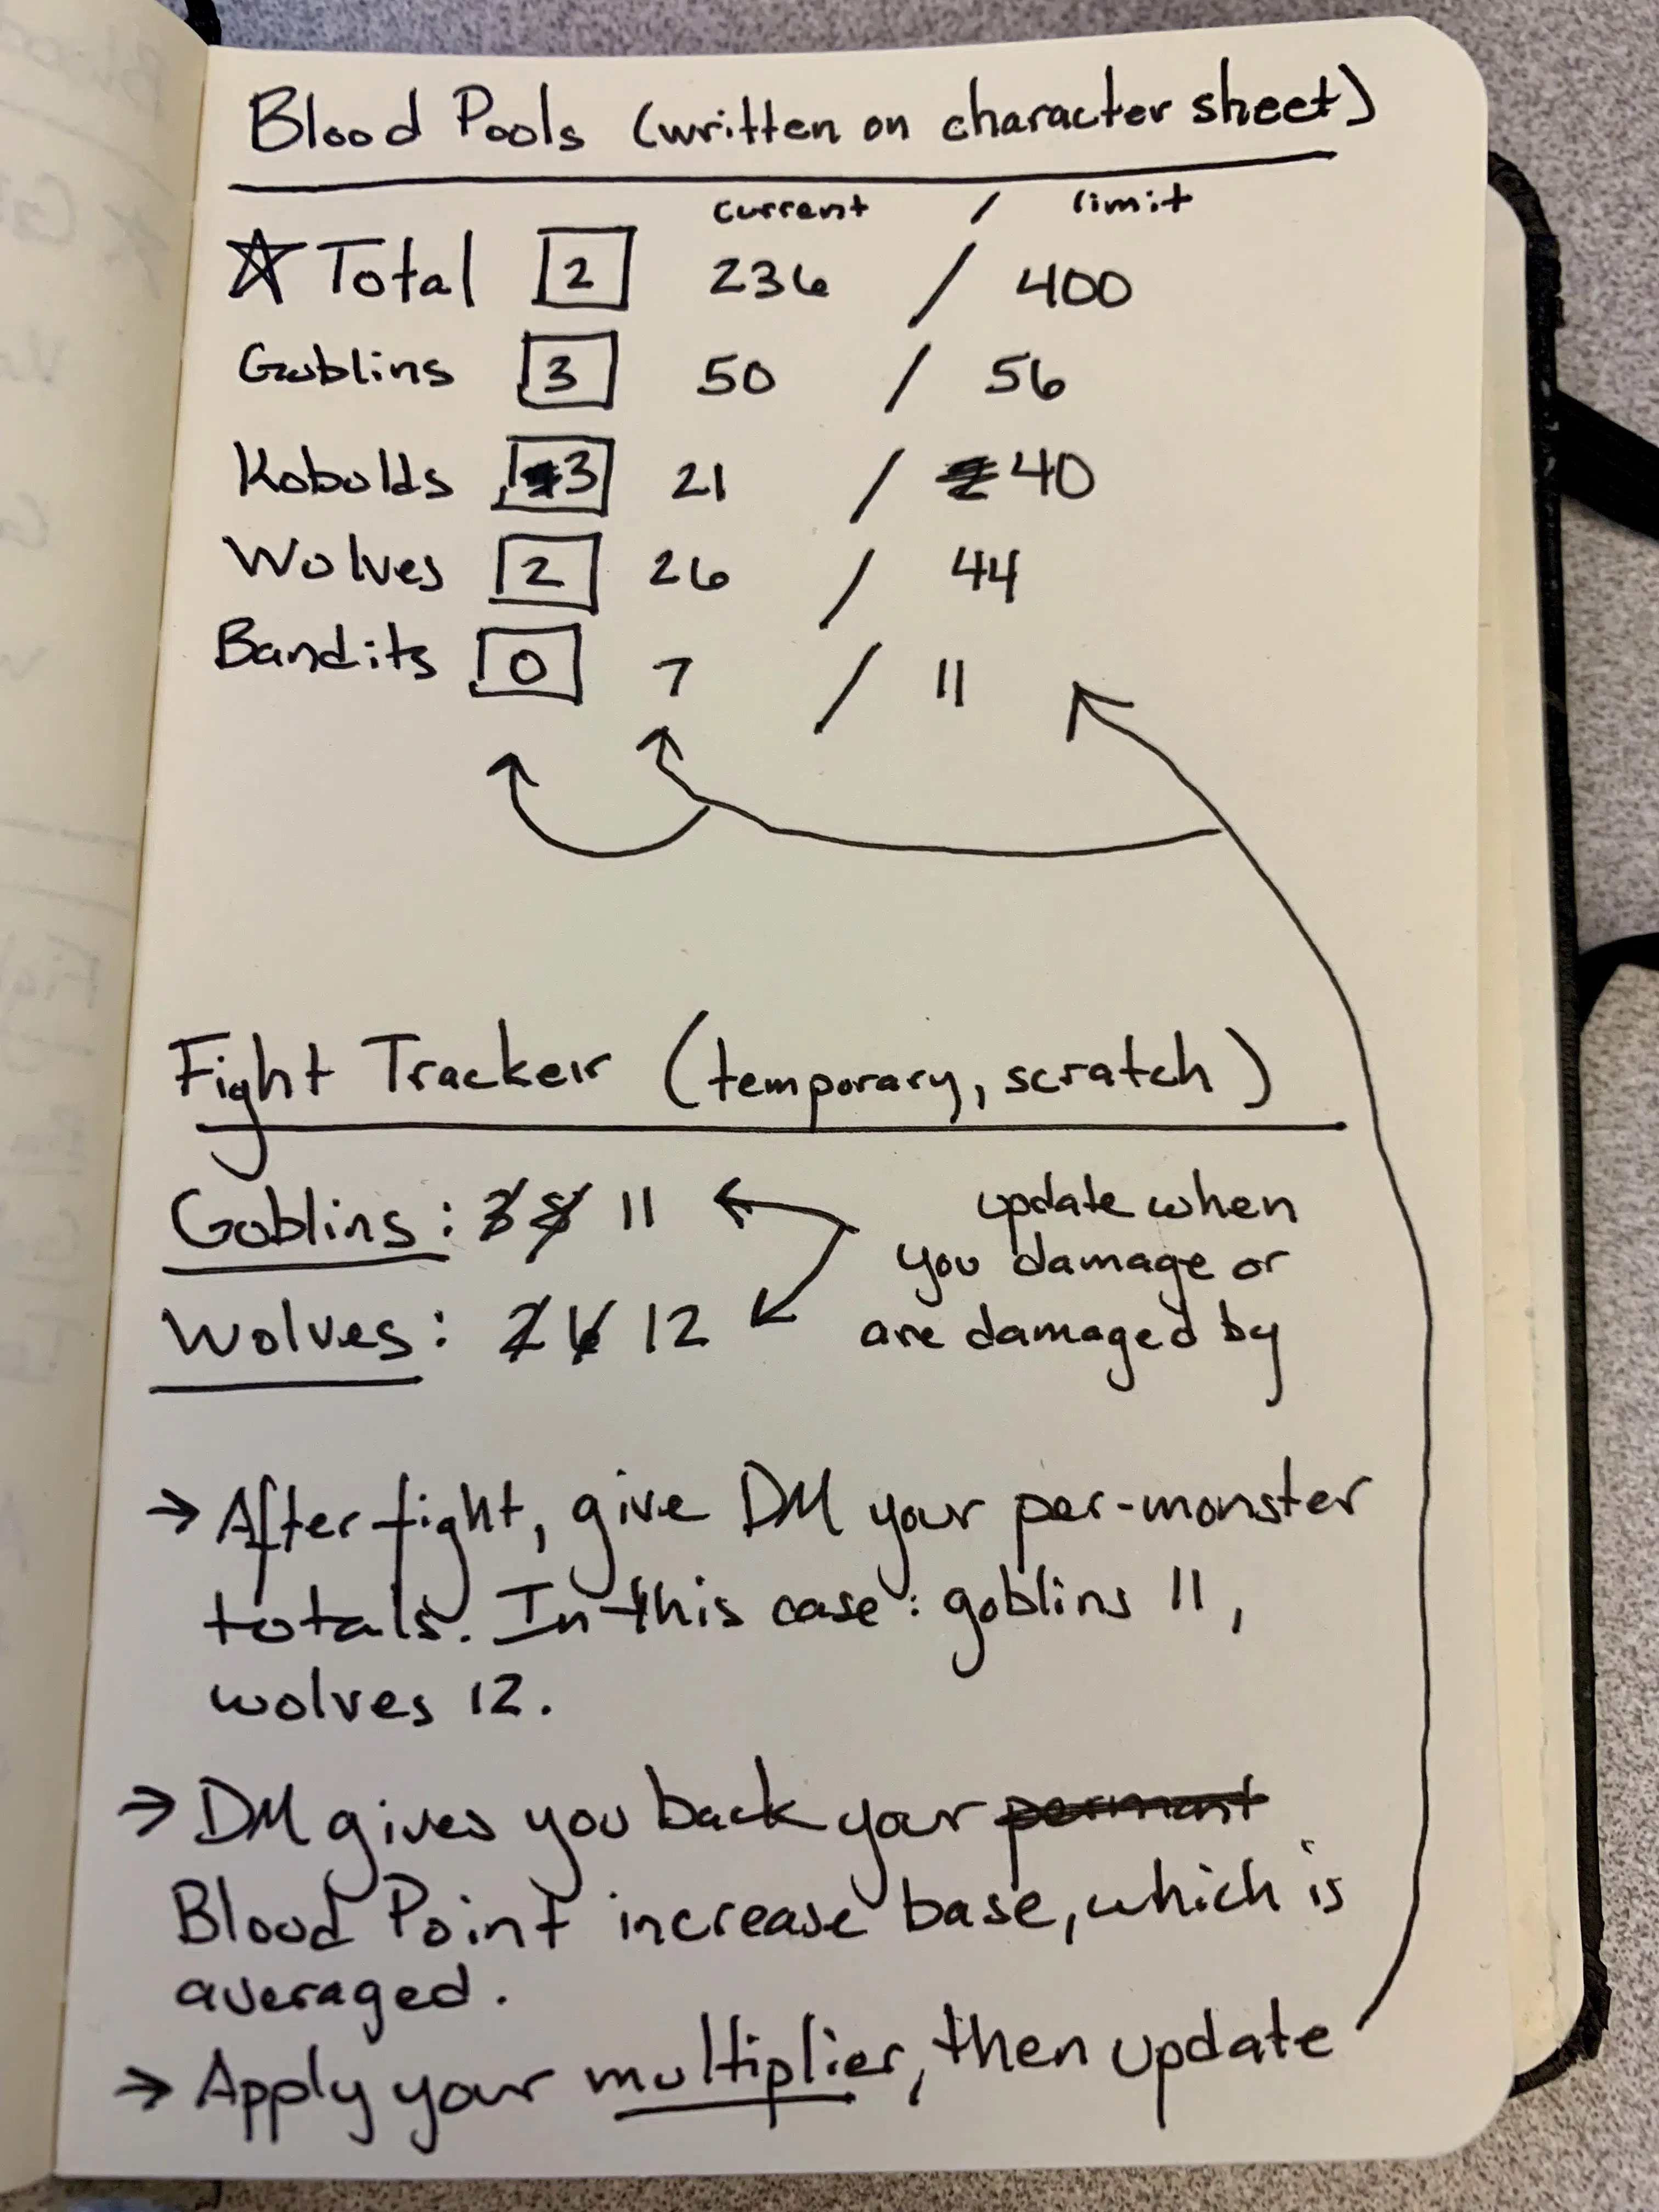 Blood Pools (written on character sheet)
current / limit
☆ Total 2 236 / 400
Goblins 3 50 / 56
Kobolds 3 21 / 40
Wolves 2 26 / 44
Bandits 0 7 / 11
Fight Tracker (temporary, scratch)
Goblins: 3 8 11
update when
you damage or
Wolves: 2 6 12
are damaged by
→ After fight, give DM your per-monster
totals. In this case: goblins 11,
wolves 12.
→ DM gives you back your permant
Blood Point increase base, which is
averaged.
→ Apply your multiplier, then update